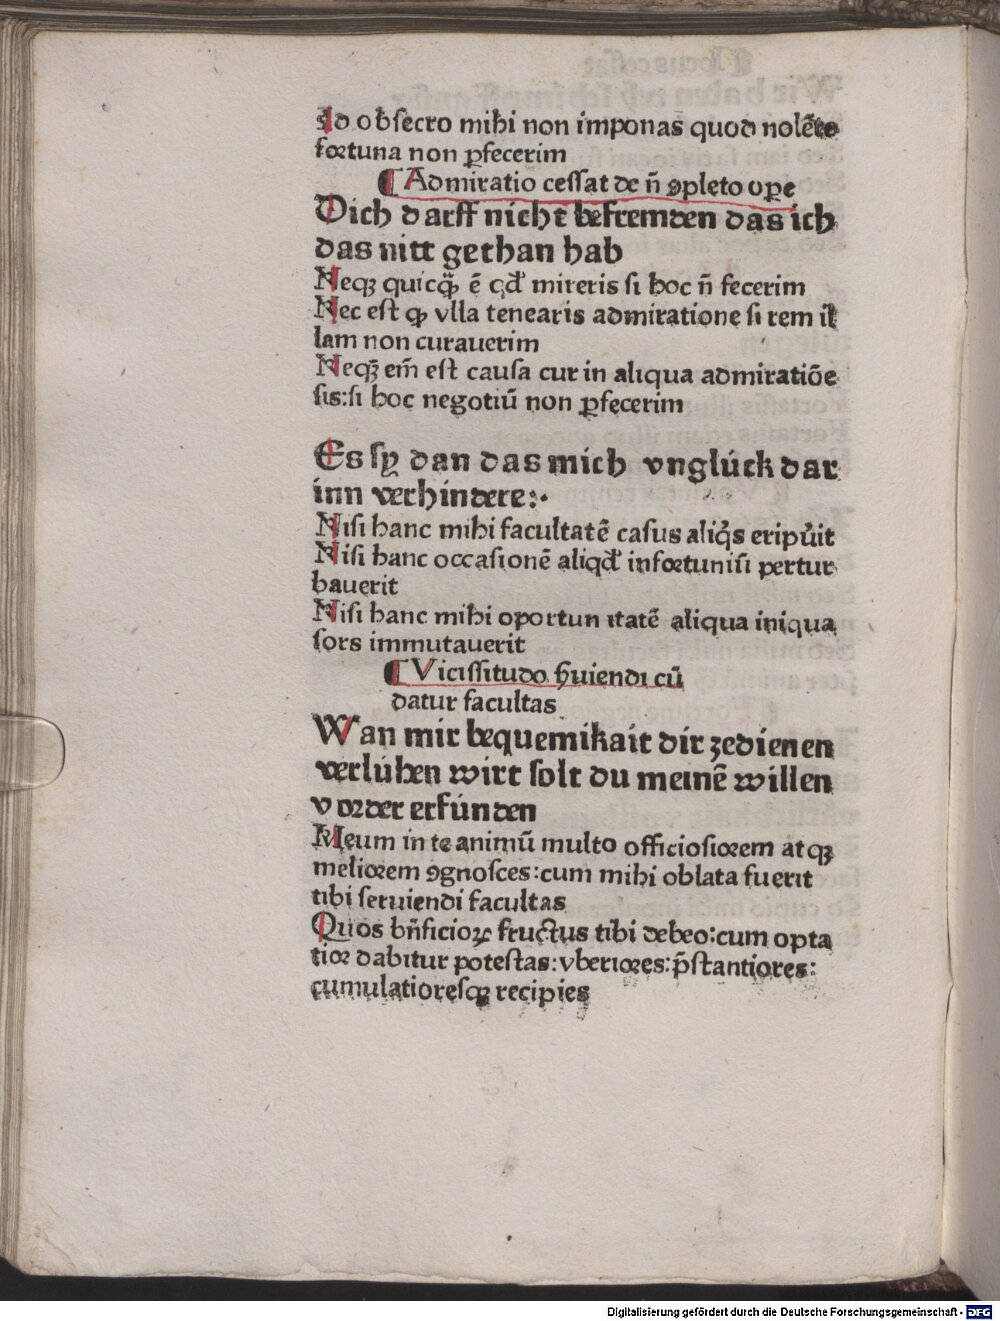 Id obsecro mihi non imponas quod nolēte
fortuna non ꝑfecerim
¶ Admiratio cessat de n̄ ꝯpleto oꝑe
Dich darff nicht befremden das ich
das nitt gethan hab
Neqꝫ quicq̄ꝫ ē qd̄ mireris si hoc n̄ fecerim
Nec est ꝙ vlla tenearis admiratione si rem il
lam non curauerim
Neqꝫ em̄ est causa cur in aliqua admiratiōe
sis:si hoc negotiū non ꝑfecerim
Es sy dan das mich vnglúck dar
inn verhindere:·
Nisi hanc mihi facultatē casus aliq̇s eripu̇it
Nisi hanc occasionē aliqd̄ infortunisi pertur
bauerit
Nisi hanc mihi oportun itatē aliqua iniqua
sors immutauerit
¶ Vicissitudo ẜuiendi cū
datur facultas
Wan mir bequemikait dir zedienen
verlúhen wirt solt du meinē willen
vorder erfúnden
Meum in te animū multo officiosiorem atqꝫ
meliorem ꝯgnosces:cum mihi oblata fuerit
tibi seruiendi facultas
Quos bn̄ficioꝝ fructus tibi debeo:cum opta
tior dabitur potestas:vberiores:p̄stantiores:
cumulatioresqꝫ recipies
Digitalisierung gefördert durch die Deutsche Forschungsgemeinschaft - DFG